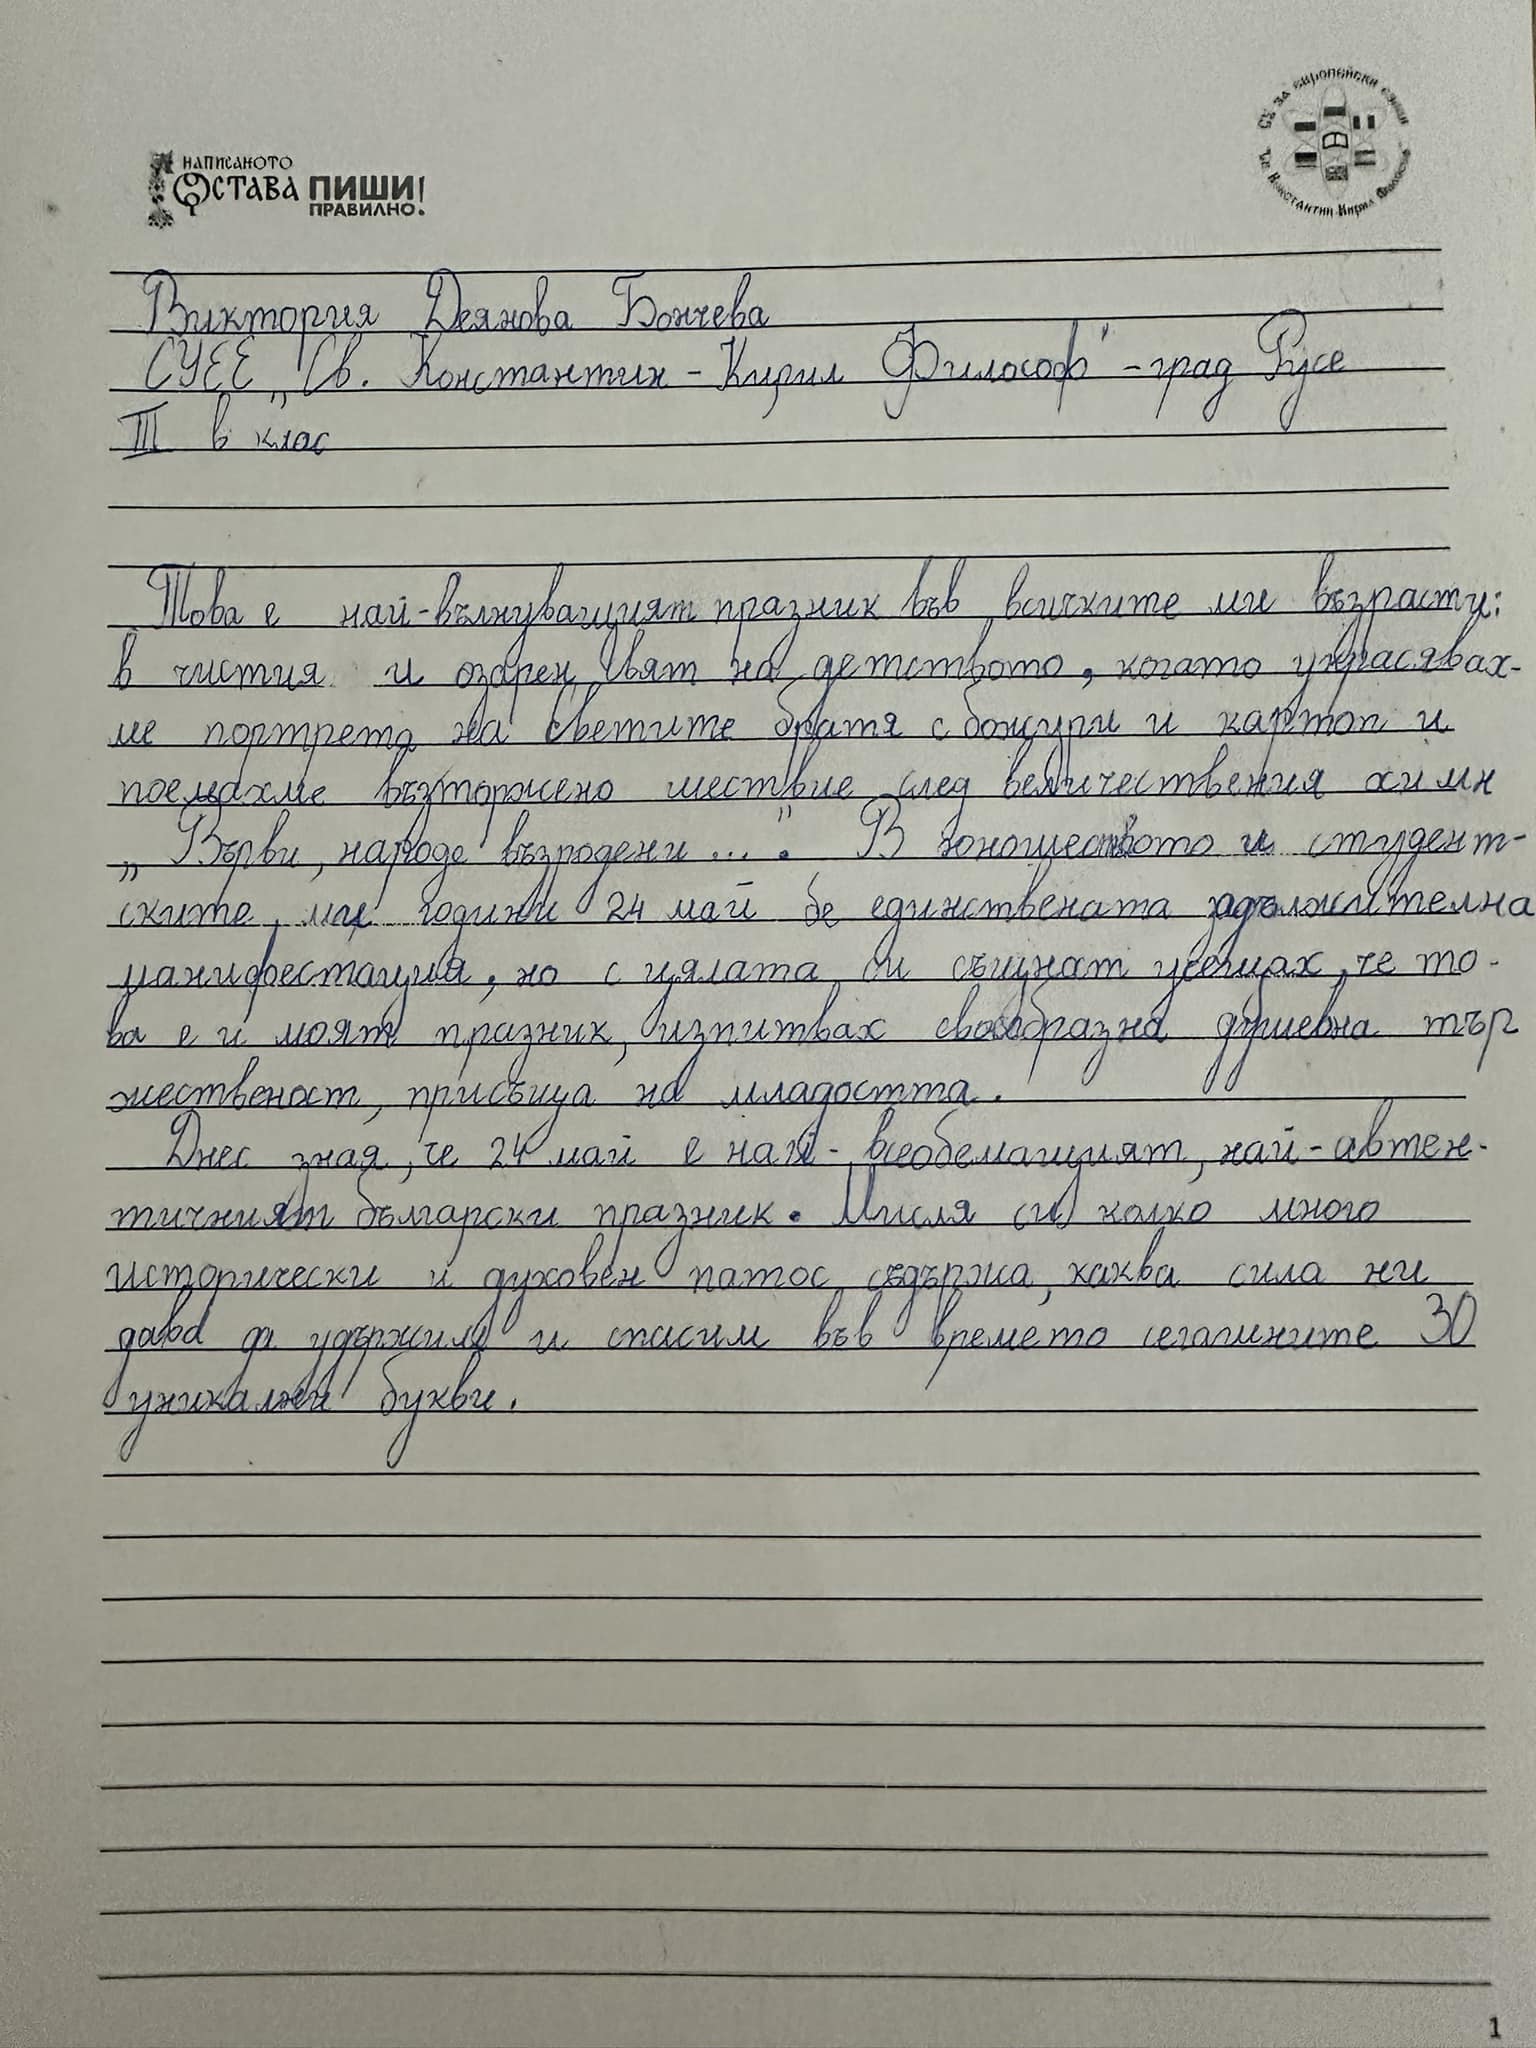 НАПИСАНОТО
ОСТАВА ПИШИ
ПРАВИЛНО!
СУ за европейски езици
Св. Константин-Кирил Философ
Виктория Деянова Бончева
СУЕЕ „Св. Константин - Кирил Философ" - град Русе
III в клас
Това е най-вълнуващият празник във всичките ми възрасти:
в чистия и озарен свят на детството, когато украсявах-
ме портрета на светите братя с божури и картоп и
поемахме възторжено шествие след величествения химн
„Върви, народе възродени ...". В юношеството и студент-
ските ми години 24 май бе единствената задължителна
манифестация, но с цялата си същност усещах, че то-
ва е и моят празник, изпитвах своеобразна душевна тър
жественост, присъща на младостта.
Днес зная, че 24 май е най-всеобемащият, най-автен-
тичният български празник. Мисля си колко много
исторически и духовен патос съдържа, каква сила ни
дава да удържим и спасим във времето сегашните 30
уникални букви.
1